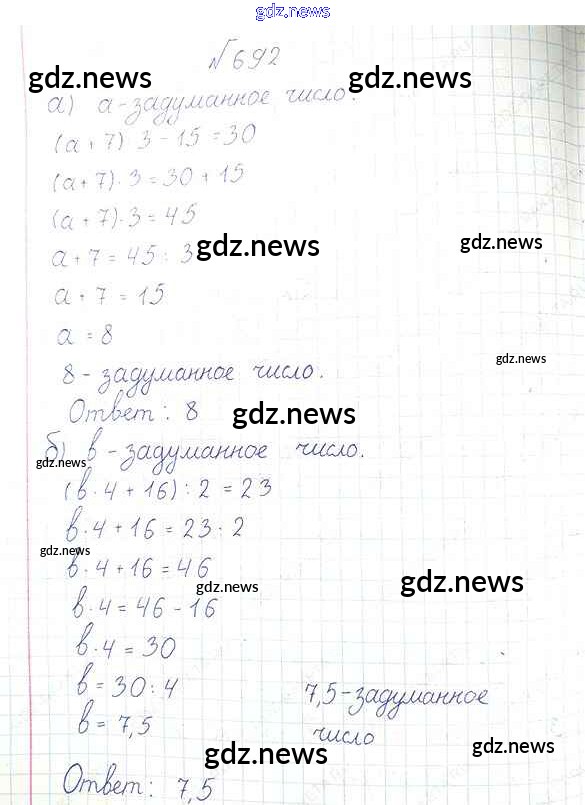 gdz.news
№692
gdz.news gdz.news
а) а-задуманное число.
(а+7) 3-15=30
(а+7)·3=30+15
(а+7)·3=45
а+7=45:3
gdz.news gdz.news
а+7=15
а=8
gdz.news
8-задуманное число.
Ответ: 8
gdz.news
б) в-задуманное число.
gdz.news
(в·4+16):2=23
в·4+16=23·2
gdz.news
в·4+16=46
gdz.news gdz.news
в·4=46-16
в·4=30
в=30:4
7,5-задуманное
в=7,5
число
gdz.news gdz.news
Ответ: 7,5